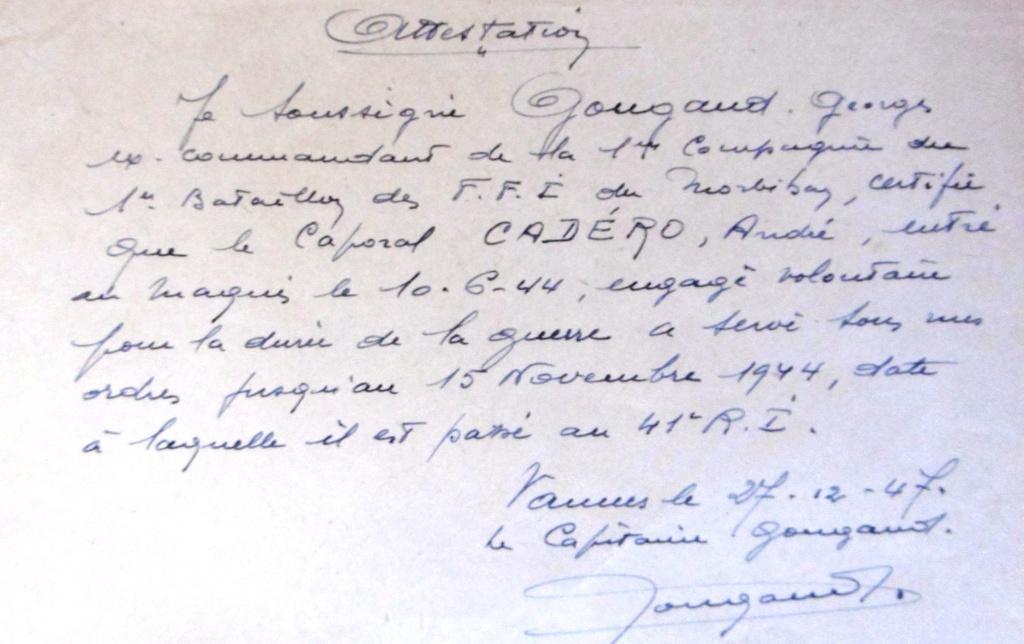 Attestation
Je soussigné Gougaud. Georges
ex-commandant de la 1re Compagnie du
1er Bataillon des F.F.I du Morbihan, certifie
que le Caporal CADÉRO, André, entré
au maquis le 10-6-44, engagé volontaire
pour la durée de la guerre a servi sous mes
ordres jusqu'au 15 Novembre 1944, date
à laquelle il est passé au 41e R.I.
Vannes le 27-12-47.
Le Capitaine Gougaud.
Gougaud.